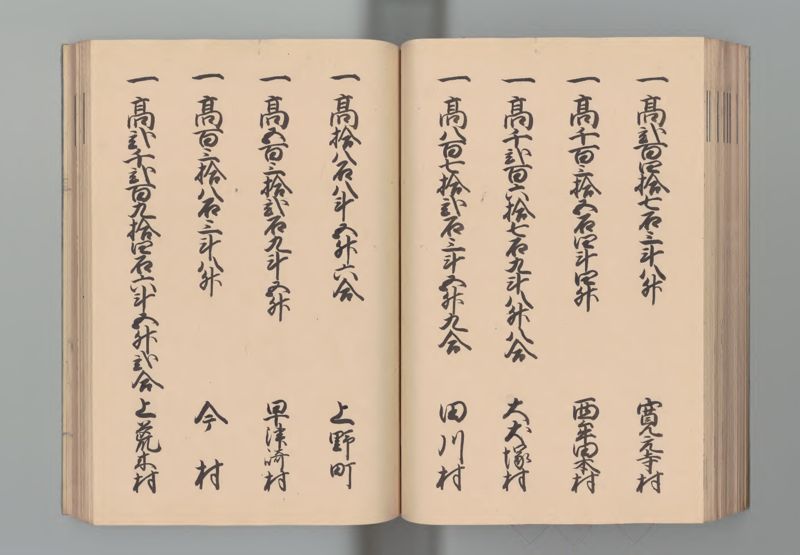 一高弐百四拾七石三斗八升 寛元寺村
一高千百三拾五石四斗四升 西牟田本村
一高千弐百六拾七石九斗八升八合 大犬塚村
一高八百七拾弐石三斗五升九合 田川村
一高拾八石八斗五升六合 上野町
一高五百三拾弐石九斗五升 早津崎村
一高百三拾八石三斗八升 今村
一高弐千弐百九拾四石六斗五升弐合 上荒木村